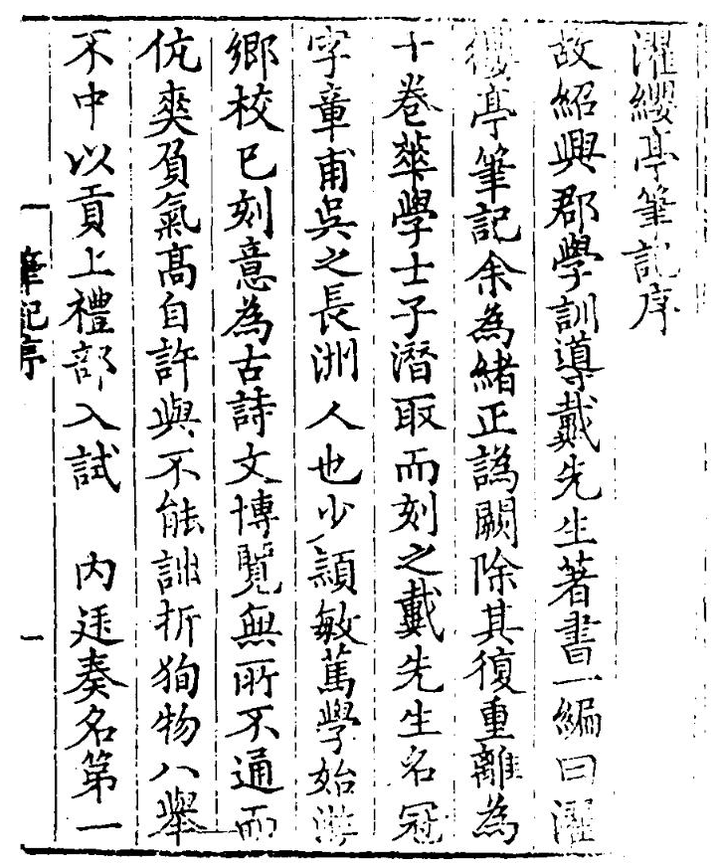 濯纓亭筆記序
故紹興郡學訓導戴先生著書一編曰濯
纓亭筆記余為緒正譌闕除其復重離為
十卷華學士子潛取而刻之戴先生名冠
字章甫吳之長洲人也少穎敏篤學始游
鄉校已刻意為古詩文博覽無所不通而
伉爽負氣高自許與不能詘折狥物八舉
不中以貢上禮部入試 內廷奏名第一
筆記序
一